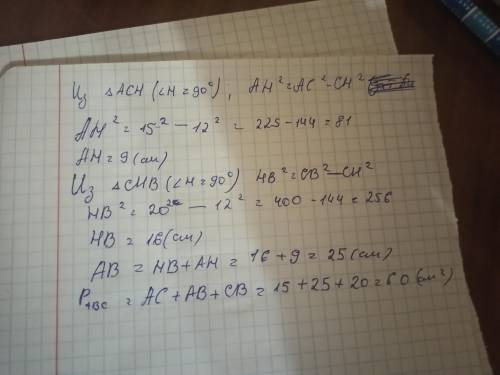 Из △ACH (∠H = 90°), AH² = AC² - CH²
AH² = 15² - 12² = 225 - 144 = 81
AH = 9 (см)
Из △CHB (∠H = 90°) HB² = CB² - CH²
HB² = 20² - 12² = 400 - 144 = 256
HB = 16 (см)
AB = HB + AH = 16 + 9 = 25 (см)
P ABC = AC + AB + CB = 15 + 25 + 20 = 60 (см²)